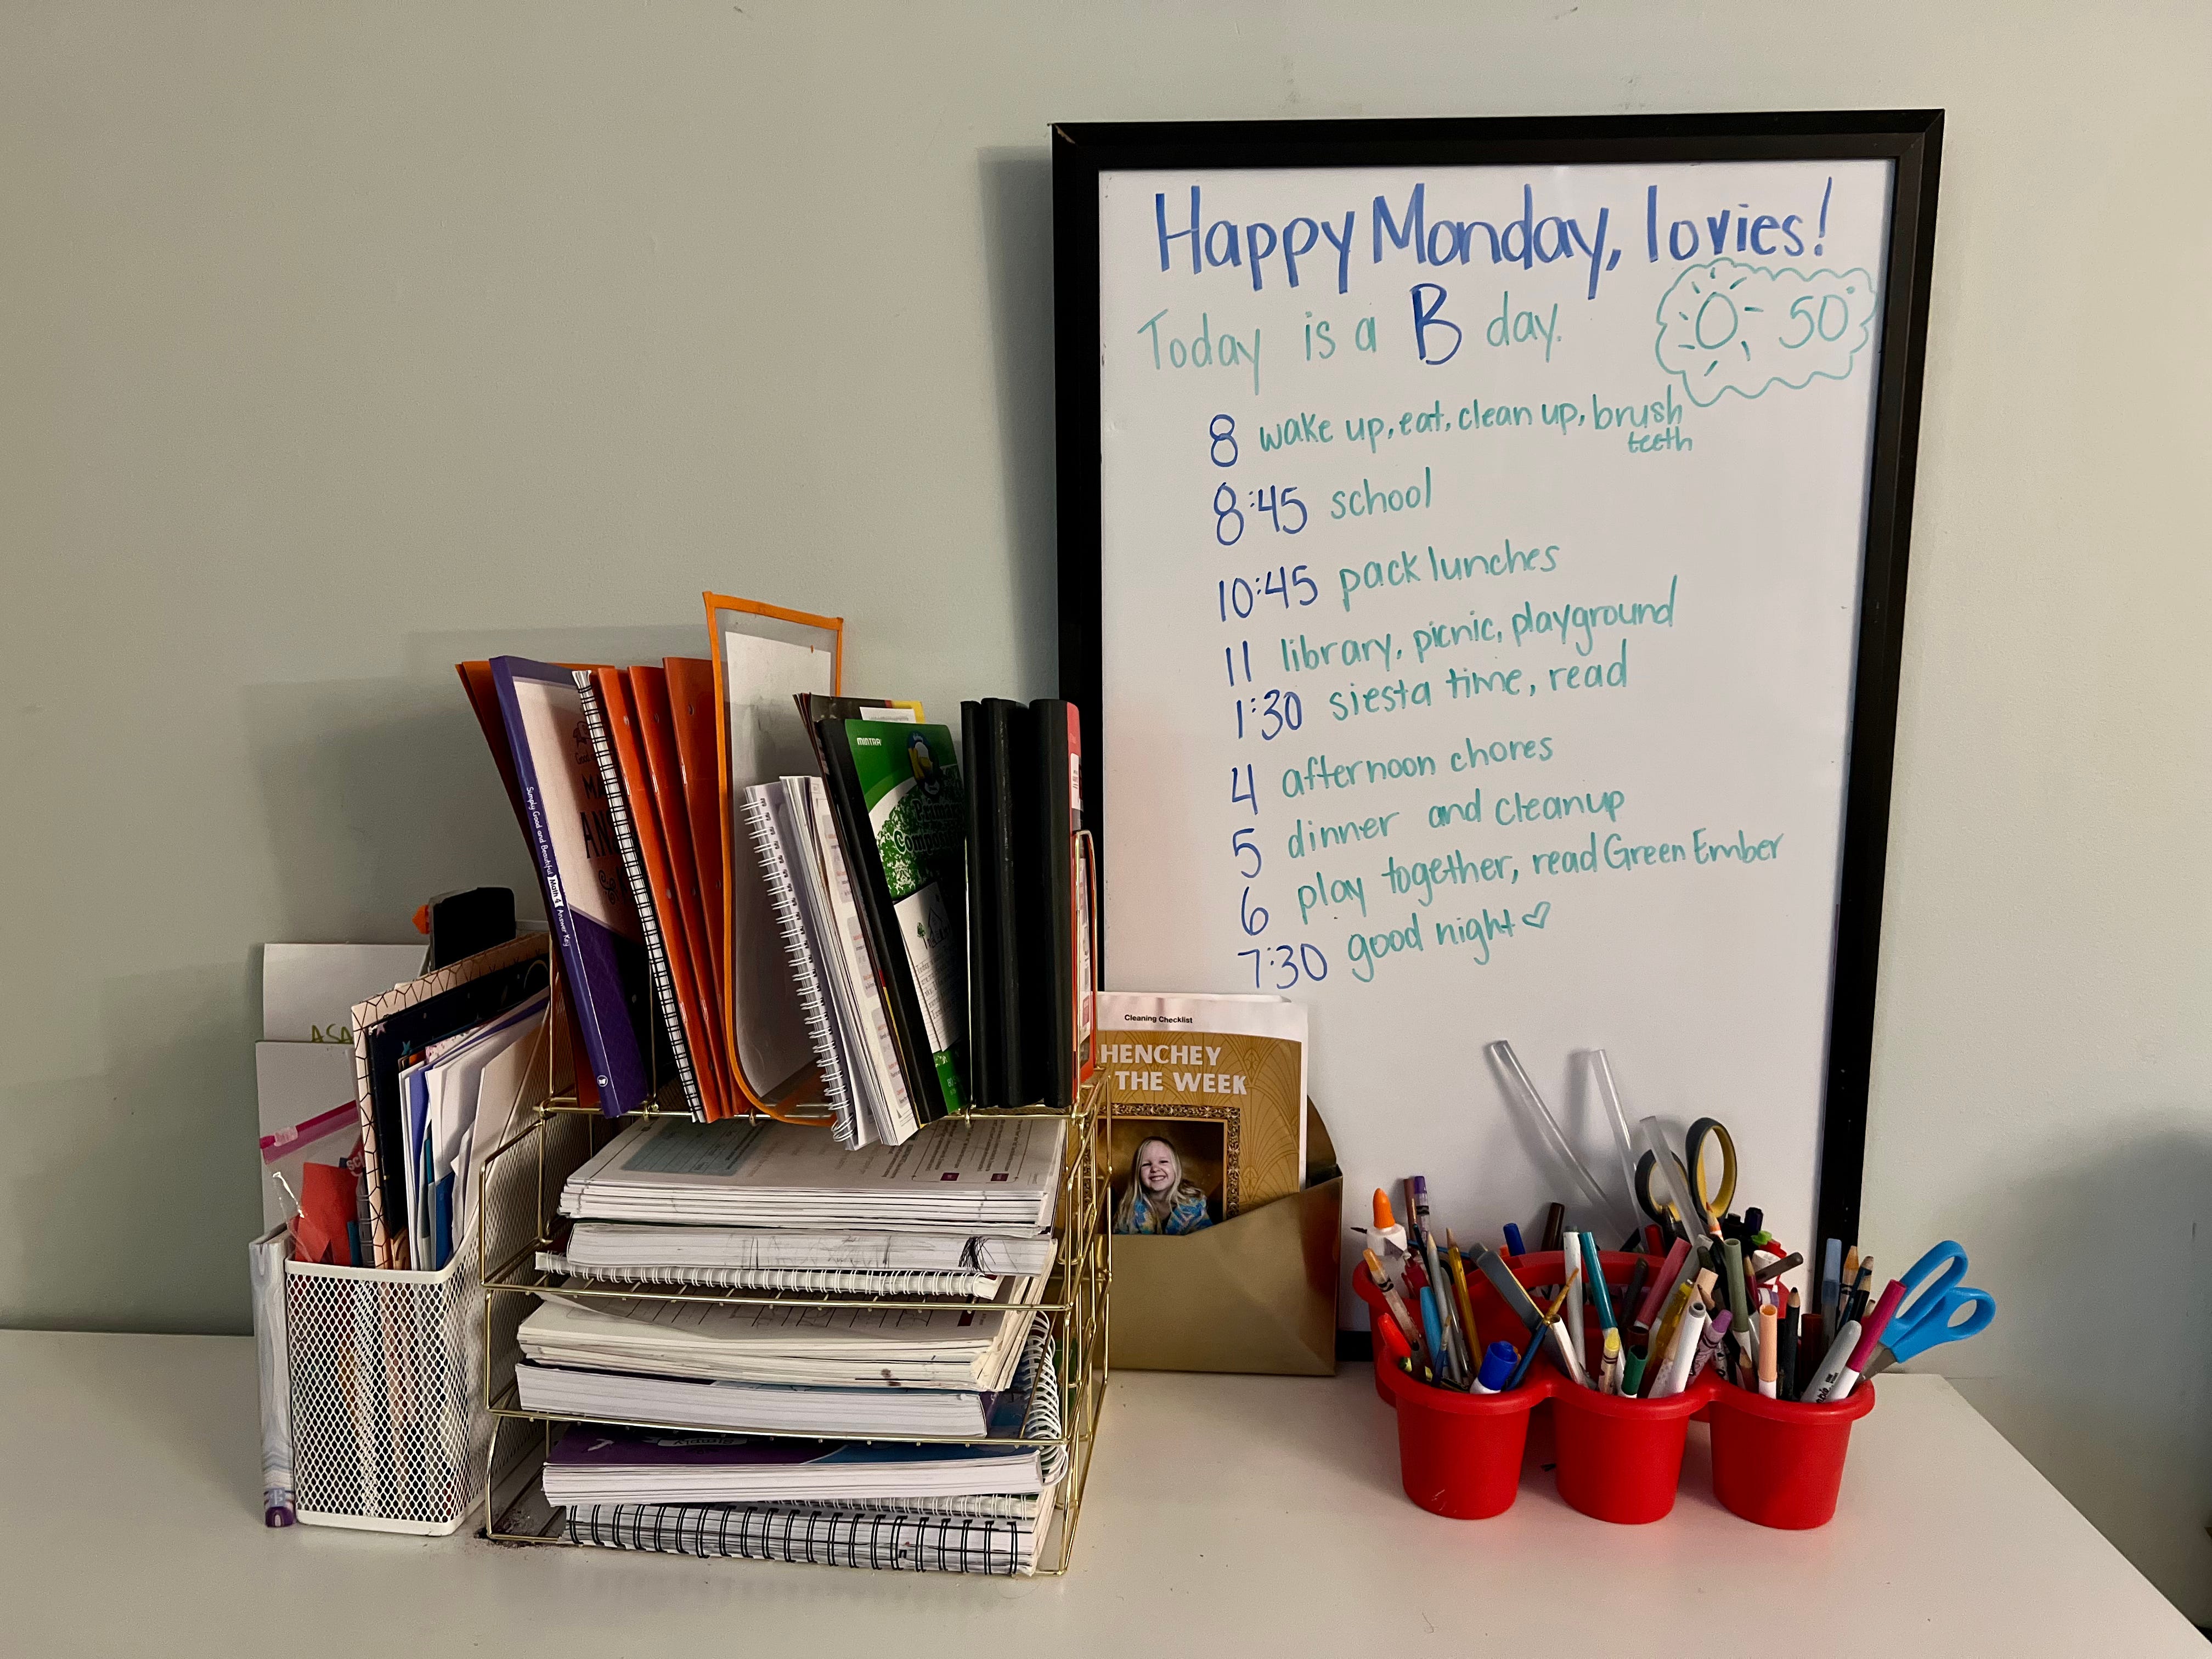 Happy Monday, lovies!
Today is a B day.
50°
8 wake up, eat, clean up, brush
teeth
8:45 school
10:45 pack lunches
11 library, picnic, playground
1:30 siesta time, read
4 afternoon chores
5 dinner and cleanup
6 play together, read Green Ember
7:30 good night
Simply Good and Beautiful Math 4 Answer Key
MINTRA
Cleaning Checklist
HENCHEY
THE WEEK